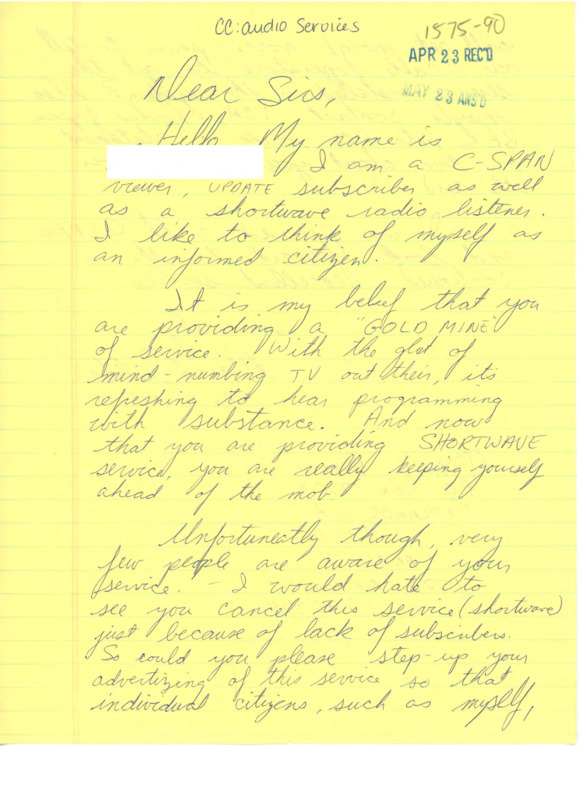 CC: audio Services
1575-90
APR 23 REC'D
MAY 23 ANS'D
Dear Sirs,
Hello. My name is
I am a C-SPAN
viewer, UPDATE subscriber as well
as a shortwave radio listener.
I like to think of myself as
an informed citizen.
It is my belief that you
are providing a "GOLD MINE"
of service. With the glut of
mind-numbing TV out their, its
refreshing to hear programming
with substance. And now
that you are providing SHORTWAVE
service, you are really keeping yourself
ahead of the mob.
Unfortuneatly though, very
few people are aware of your
service. - I would hate to
see you cancel this service (shortwave)
just because of lack of subscribers.
So could you please step-up your
advertizing of this service so that
individual citizens, such as myself,